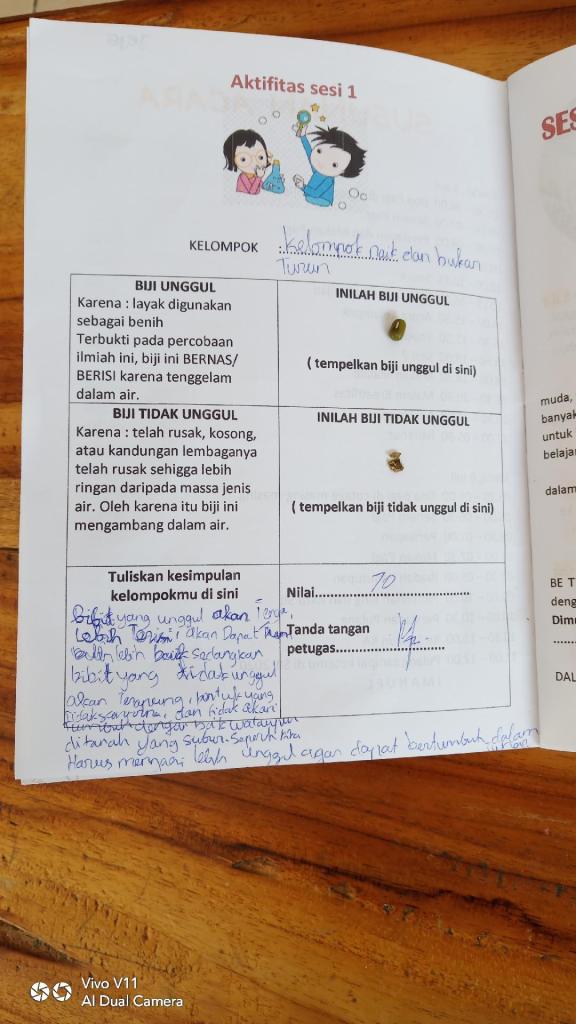 Aktifitas sesi 1
KELOMPOK : Kelompok naik dan bukan
Turun
BIJI UNGGUL
Karena : layak digunakan
sebagai benih
Terbukti pada percobaan
ilmiah ini, biji ini BERNAS/
BERISI karena tenggelam
dalam air.
INILAH BIJI UNGGUL
( tempelkan biji unggul di sini)
BIJI TIDAK UNGGUL
Karena : telah rusak, kosong,
atau kandungan lembaganya
telah rusak sehigga lebih
ringan daripada massa jenis
air. Oleh karena itu biji ini
mengambang dalam air.
INILAH BIJI TIDAK UNGGUL
( tempelkan biji tidak unggul di sini)
Tuliskan kesimpulan
kelompokmu di sini
bibit yang unggul akan
Lebih Terisi, akan Dapat
lebih baik sedangkan
bibit yang tidak unggul
akan Terapung, bentuk yang
tidak sempurna, dan tidak akan
Tumbuh dengan baik walaupun
ditanah yang subur. Seperti kita
Harus menjadi lebih unggul agar dapat bertumbuh dalam
Nilai 70
Tanda tangan
petugas
SES
muda,
banyak
untuk
belajar
dalam
BE T
deng
Dimu
DAL
Vivo V11
AI Dual Camera